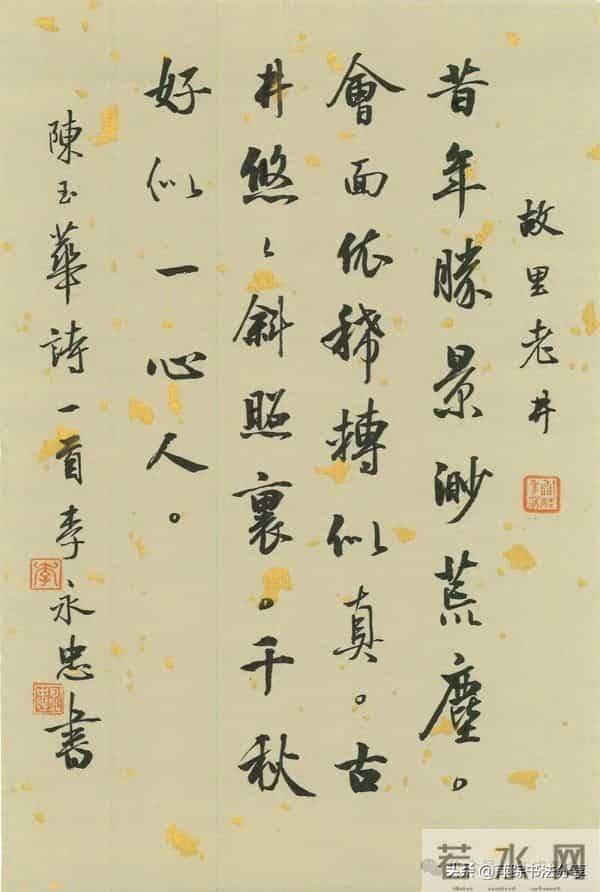 故里老井
昔年勝景渺荒塵。
會面依稀摶似真。古
井悠〻斜照裏。千秋
好似一心人。
陳玉華詩一首李永忠書
李
若水网